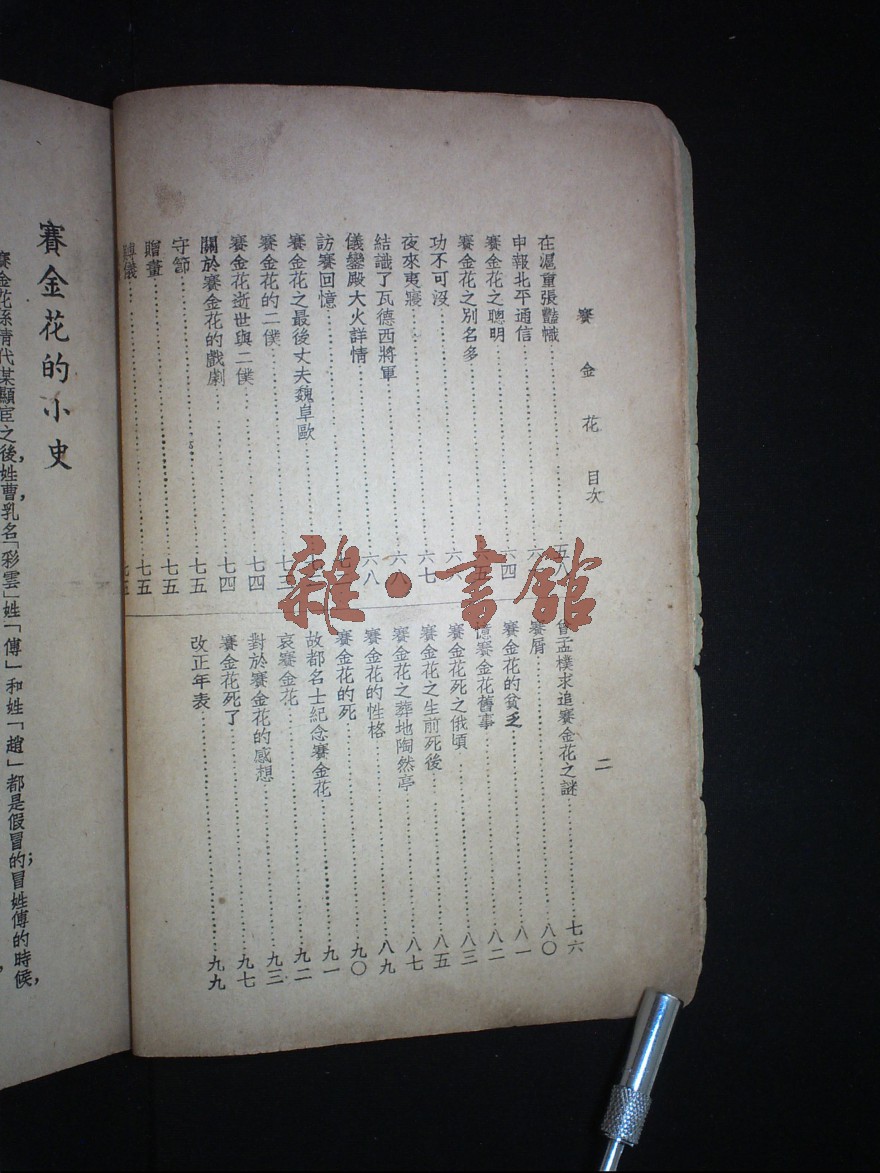 賽金花 目次
二
在滬重張豔幟
申報北平通信
賽金花之聰明……六四
賽金花之別名多
功不可沒
夜來夷寢……六七
結識了瓦德西將軍……六八
儀鑾殿大火詳情……六八
訪賽回憶
賽金花之最後丈夫魏阜歐
賽金花的二僕
賽金花逝世與二僕……七四
關於賽金花的戲劇……七四
守節……七五
贈畫……七五
賻儀……七五
曾孟樸求追賽金花之謎……七六
賽屑……八〇
賽金花的貧乏……八一
憶賽金花舊事……八二
賽金花死之俄頃……八三
賽金花之生前死後……八五
賽金花之葬地陶然亭……八七
賽金花的性格……八九
賽金花的死……九〇
故都名士紀念賽金花……九一
哀賽金花……九二
對於賽金花的感想……九三
賽金花死了……九七
改正年表……九九
賽金花的小史
賽金花係清代某顯宦之後，姓曹，乳名「彩雲」姓「傅」和姓「趙」都是假冒的；冒姓傅的時候，
雜·書館